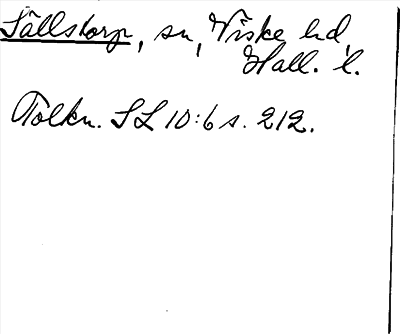 Sällstorp, sn, Viske hd,
Hall. l.
Tolkn. SL 10:6 s. 212.